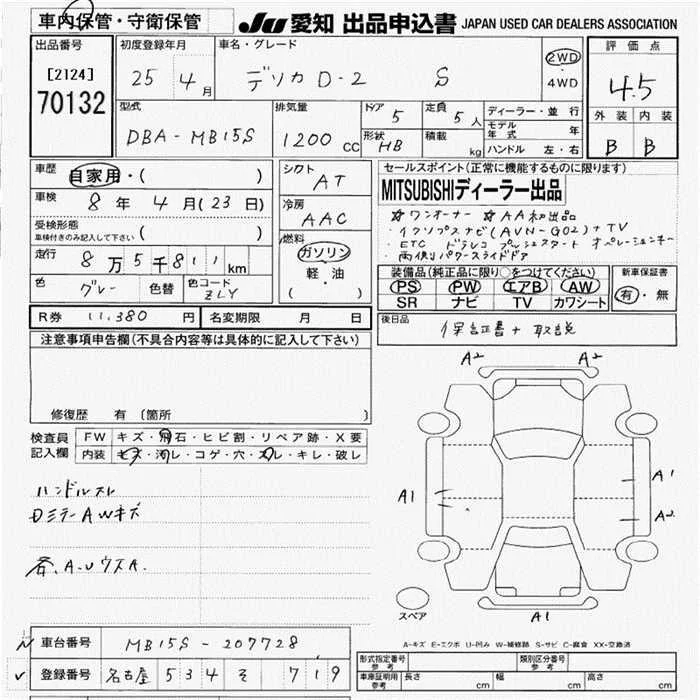 車内保管・守衛保管 JU 愛知 出品申込書 JAPAN USED CAR DEALERS ASSOCIATION
出品番号 初度登録年月 車名・グレード 2WD 評価点
[2124] 25 4月 デリカD-2 S 4WD 4.5
70132
型式 排気量 ドア 5 定員 5人 ディーラー・並行 外装 内装
DBA-MB15S 1200cc 形状 HB 積載 kg モデル年式 年 B B
ハンドル 左・右
車歴 自家用・( ) シフト AT セールスポイント(正常に機能するものに限ります)
車検 8年4月(23日) 冷房 AAC MITSUBISHIディーラー出品
受検形態 ( ) ☆ワンオーナー ☆AA初出品
車検付きのみ記入して下さい
燃料 ・イクリプスナビ(AVN-G02)+TV
走行 8万5千811km ガソリン ・ETC ドラレコ プッシュスタート オペレーションキー
軽・油 ・両側パワースライドドア
( )
色 グレー 色替 色コード ZLY 装備品(純正品に限り○をつけてください) 新車保証書
PS PW エアB AW 有・無
SR ナビ TV カワシート
R券 11,380円 名変期限 月 日 後日品
保証書+取説
注意事項申告欄(不具合内容等は具体的に記入して下さい)
修復歴 有 〔箇所 〕
検査員記入欄 FW キズ・飛石・ヒビ割・リペア跡・X要
内装 キズ・汚レ・コゲ・穴・スレ・キレ・破レ
ハンドルスレ
DミラーAWキズ
各.A.UウスA.
A2 A2
A1 A1
A2
スペア A1
A-キズ E-エクボ U-凹み W-補修跡 S-サビ C-腐食 XX-交換済
車台番号 MB15S-207728
登録番号 名古屋 534 そ 719
形式指定番号 参考 類別区分番号 参考
車庫証明用 参考 長さ cm 幅 cm 高さ cm